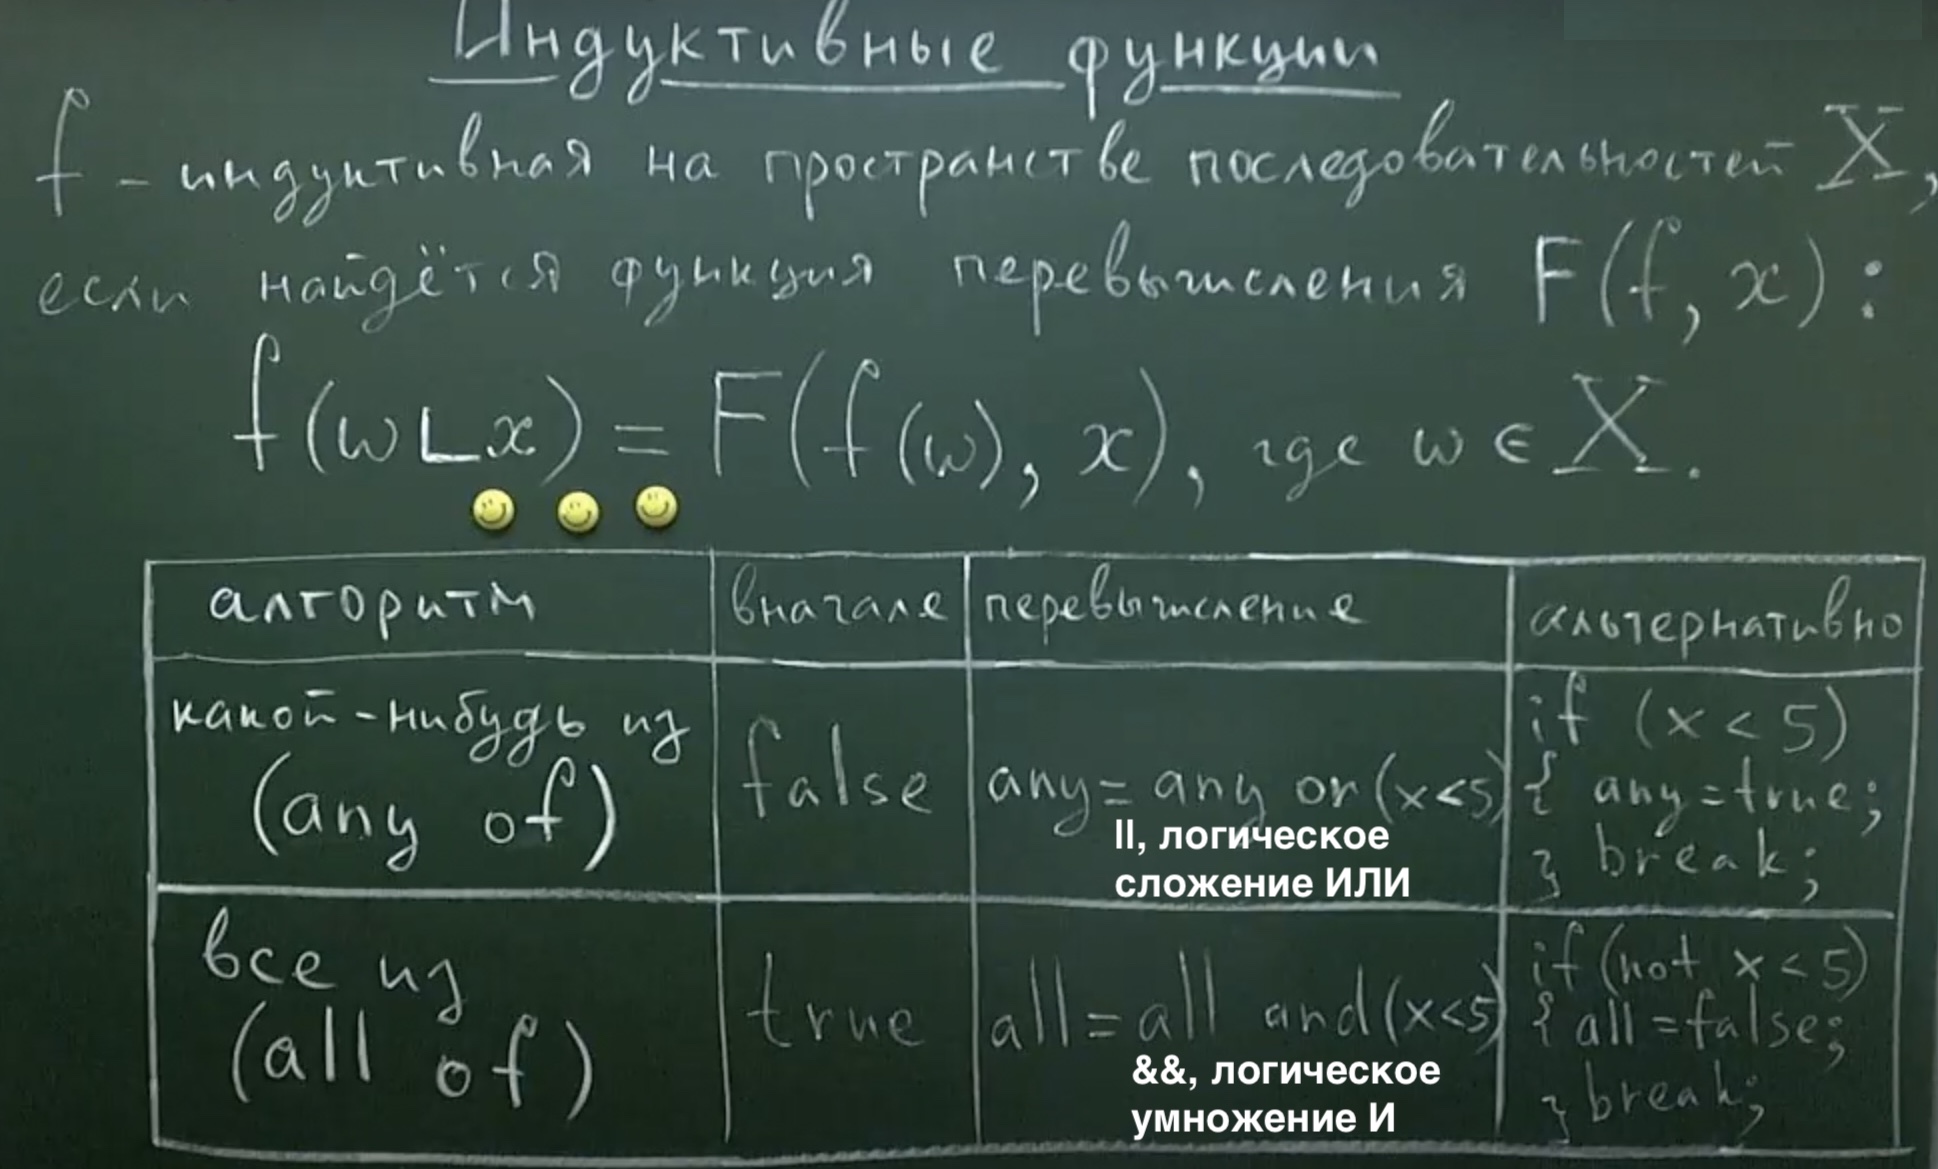 Индуктивные функции
f - индуктивная на пространстве последовательностей X,
если найдётся функция перевычисления F(f, x):
f(ω∟x) = F(f(ω), x), где ω ∈ X.
алгоритм вначале перевычисление альтернативно
какой-нибудь из
(any of)
false
any = any or (x<5)
II, логическое
сложение ИЛИ
if (x < 5)
{ any = true;
} break;
все из
(all of)
true
all = all and (x<5)
&&, логическое
умножение И
if (not x < 5)
{ all = false;
} break;